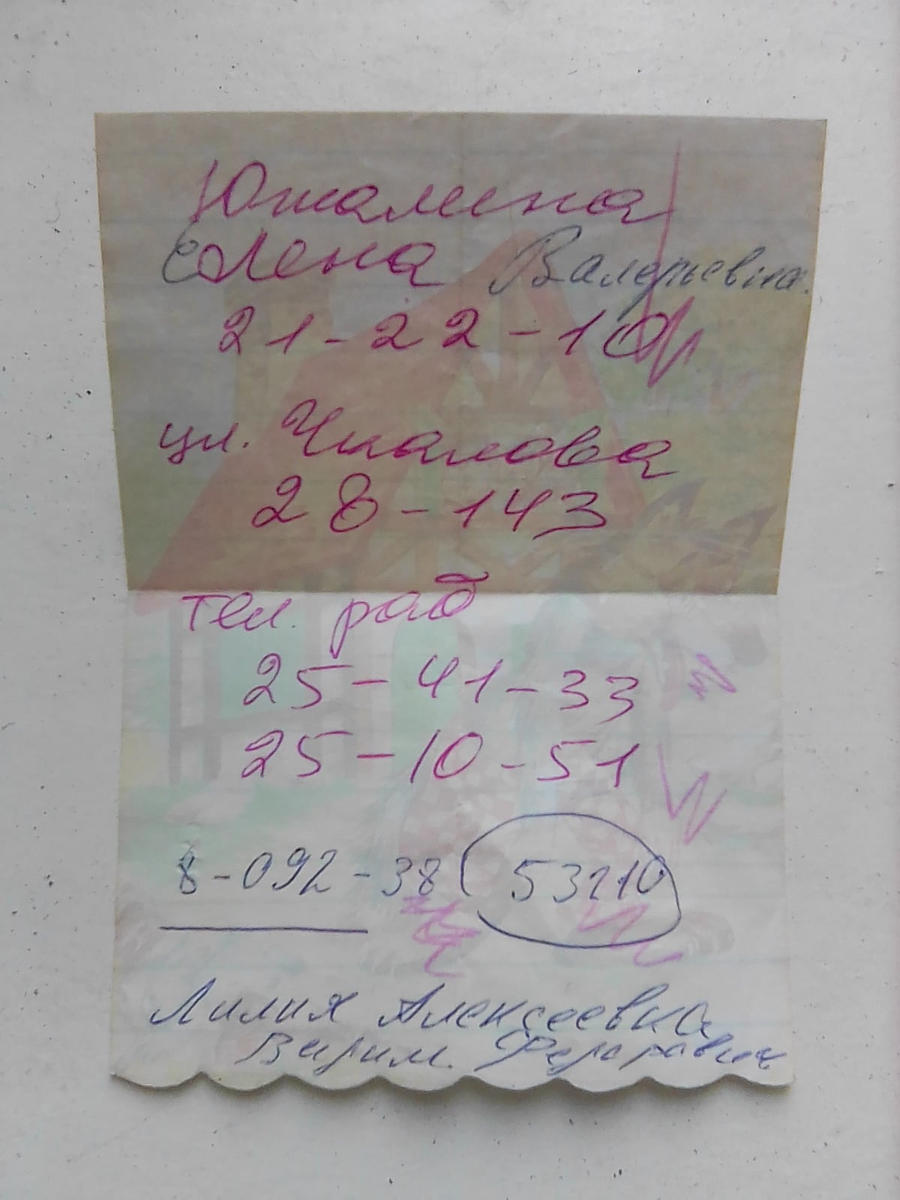 Южалина
Елена Валерьевна.
21-22-10
ул. Чкалова
28-143
тел. раб
25-41-33
25-10-51
8-092-38 53210
Лилия Алексеевна